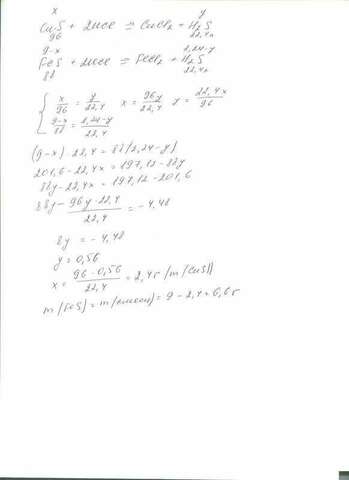 x y
CuS + 2HCl = CuCl₂ + H₂S
96 22,4л
9-x 2,24-y
FeS + 2HCl = FeCl₂ + H₂S
88 22,4л
x/96 = y/22,4 x = 96y/22,4 y = 22,4x/96
9-x/88 = 2,24-y/22,4
(9-x)·22,4 = 88(2,24-y)
201,6 - 22,4x = 197,12 - 88y
88y - 22,4x = 197,12 - 201,6
88y - 96y·22,4/22,4 = -4,48
8y = -4,48
y = 0,56
x = 96·0,56/22,4 = 2,4г /m(CuS)/
m(FeS) = m(смеси) = 9 - 2,4 = 6,6г